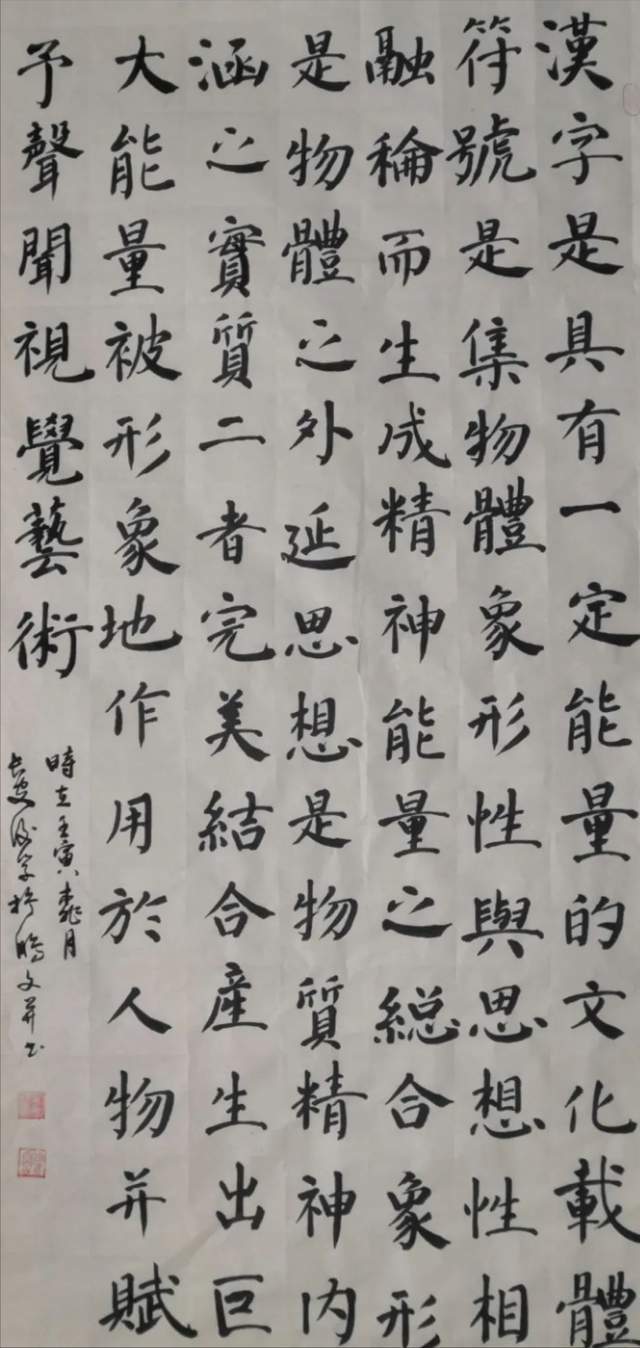 漢字是具有一定能量的文化載體
符號是集物體象形性與思想性相
融稐而生成精神能量之總合象形
是物體之外延思想是物質精神內
涵之實質二者完美結合產生出巨
大能量被形象地作用於人物并賦
予聲聞視覺藝術
時在壬寅臘月
文并書